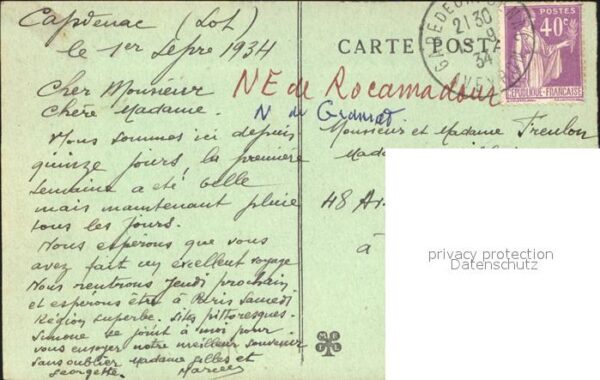 Capdenac (Lot)
le 1er Sepre 1934
CARTE POSTA
GARE DE CAPDENAC
21 30
1 -9
34
AVEYRON
POSTES
40c
REPUBLIQUE FRANÇAISE
Cher Monsieur
Chère Madame.
NE de Rocamadour
N de Gramat
Nous sommes ici depuis
quinze jours, la première
semaine a été belle
mais maintenant pluie
tous les jours.
Nous espérons que vous
avez fait un excellent voyage
Nous rentrons Jeudi prochain
et espérons être à Paris Samedi.
Région superbe. Sites pittoresques.
Simone se joint à moi pour
vous envoyer notre meilleur souvenir
sans oublier Madame Gilles et
Georgette.
Monsieur et Madame Treulon
Mada
48 A
à
privacy protection
Datenschutz